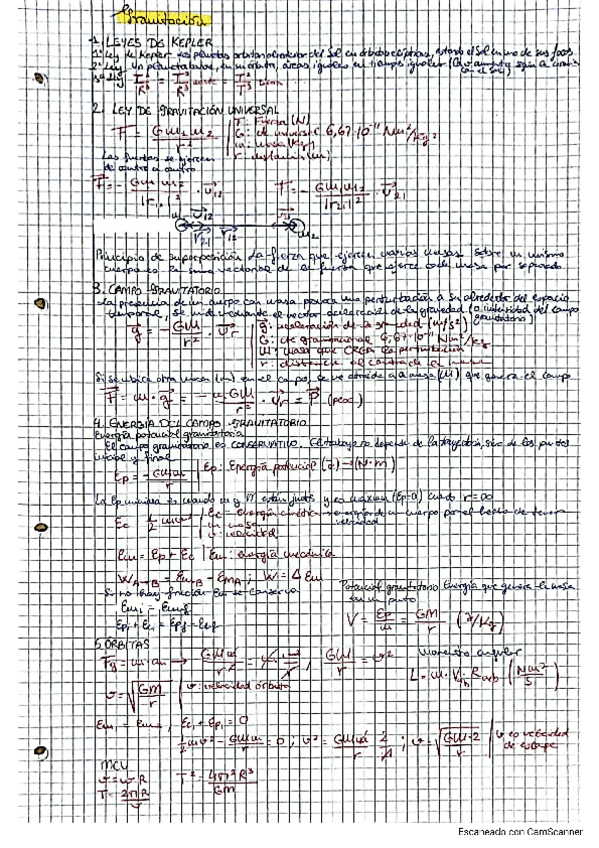 Gravitación
1. LEYES DE KEPLER
1ª Ley de Kepler: los planetas orbitan alrededor del Sol en órbitas elípticas, estando el Sol en uno de sus focos
2ª Ley: Un planeta barre, en su órbita, áreas iguales en tiempos iguales
3ª Ley
2. LEY DE GRAVITACIÓN UNIVERSAL
F = GM₁m₂ / r²
F: Fuerza (N)
G: cte universal 6,67·10⁻¹¹ Nm²/kg²
m: masa (kg)
r: distancia (m)
Las fuerzas se ejercen
de centro a centro
F = - GM₁m₂ / |r₁₂|² · u₁₂
F = - GM₁m₂ / |r₂₁|² · u₂₁
Principio de superposición La fuerza que ejercen varias masas sobre un mismo
cuerpo es la suma vectorial de la fuerza que ejerce cada masa por separado
3. CAMPO GRAVITATORIO
La presencia de un cuerpo con masa provoca una perturbación a su alrededor del espacio
temporal, se mide mediante el vector aceleración de la gravedad (o intensidad del campo
gravitatorio)
g = - GM / r² · ur
g: aceleración de la gravedad (m/s²)
G: cte gravitacional 6,67·10⁻¹¹ Nm²/kg
M: masa que CREA la perturbación
r: distancia al centro de la masa
Si se ubica otra masa (m) en el campo, se ve atraída a la masa (M) que genera el campo
F = m·g = - m·GM / r² · ur = P (peso)
4. ENERGIA DEL CAMPO GRAVITATORIO
Energía potencial gravitatoria
El campo gravitatorio es CONSERVATIVO. El trabajo no depende de la trayectoria, sino de los puntos
inicial y final
Ep = - GMm / r
Ep: Energía potencial (J) → (N·m)
La Ep mínima es cuando m y M están juntos y es máxima (Ep=0) cuando r = ∞
Ec = 1/2 mv²
Ec = Energía cinética → energía de un cuerpo por el hecho de tener
velocidad
m: masa
v: velocidad
Em = Ep + Ec | Em: energía mecánica
W A→B = EmB - EmA ; W = ΔEm
Si no hay fricción Em se conserva
Emi = Emf
Potencial gravitatorio Energía que genera la masa
en un punto
V = Ep / m = GM / r (J/kg)
5. ÓRBITAS
Fg = m·an →
GM / r = v²
Momento angular
v = √(GM / r) | v: velocidad órbita
Ec₁ + Ep₁ = 0
1/2 mv² - GMm / r = 0 ;
v = √(GM·2 / r) | v es velocidad
de escape
MCU
v = ω R
T = 2πR / v
T² = 4π²R³ / GM
Escaneado con CamScanner